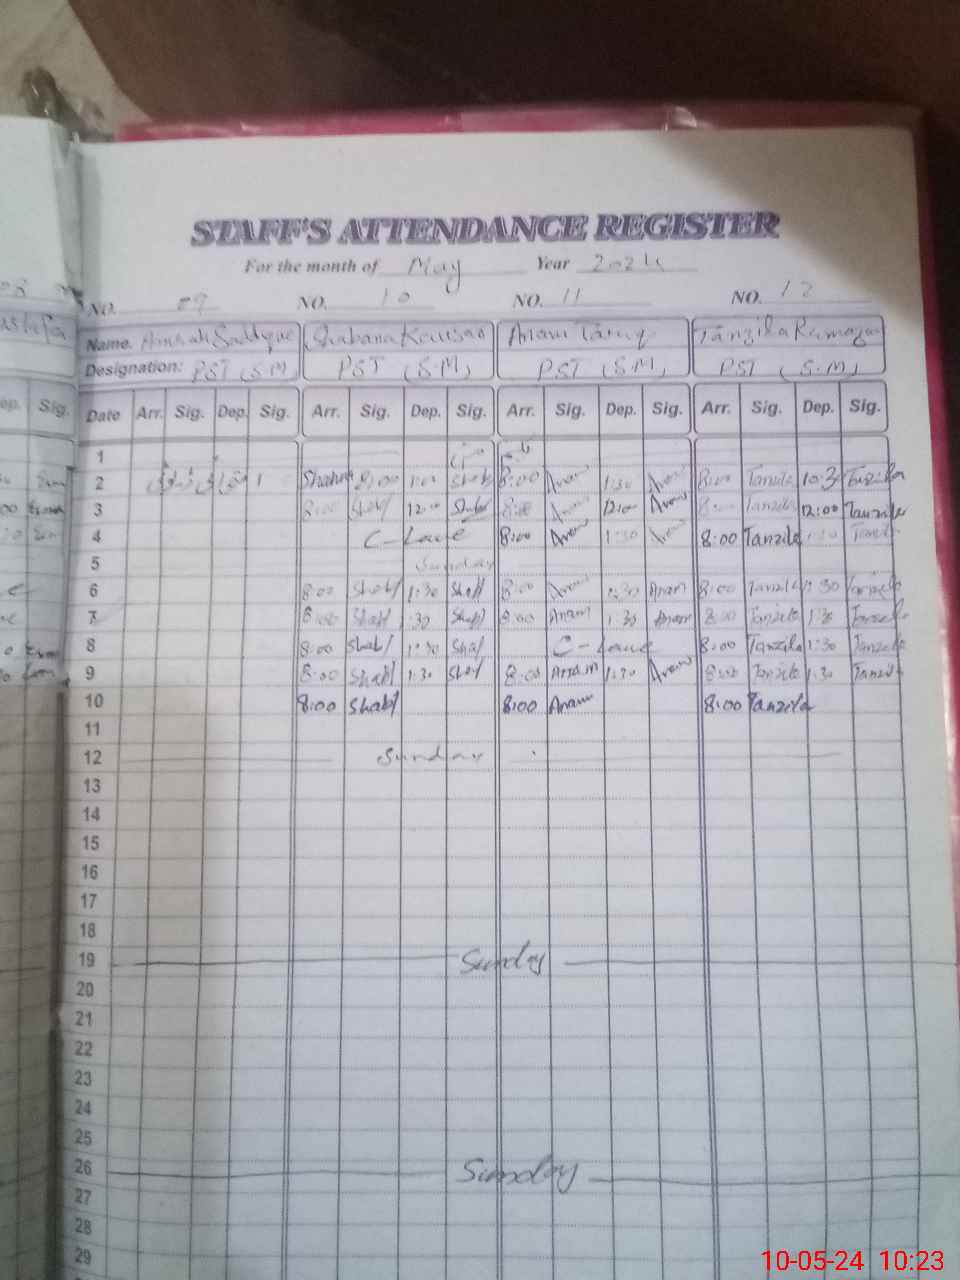 STAFF'S ATTENDANCE REGISTER
For the month of May Year 2024
NO. 09 NO. 10 NO. 11 NO. 12
Name. Shabana Kausar Anam Tariq Tanzila Ramazan
Designation: PST (S.M) PST (S.M) PST (S.M) PST (S.M)
Dep. Sig. Date Arr. Sig. Dep. Sig. Arr. Sig. Dep. Sig. Arr. Sig. Dep. Sig. Arr. Sig. Dep. Sig.
1
2 8:00 Shab 8:00 Anam 1:30 Anam 8:00 Tanzila 10:3 Tanzila
3 8:00 Shab 12:00 Shab 8:00 Anam 12:00 Anam 8:00 Tanzila 12:00 Tanzila
4 C-Leave 8:00 Anam 1:30 Anam 8:00 Tanzila 1:30 Tanzila
5 Sunday
6 8:00 Shab 1:30 Shab 8:00 Anam 1:30 Anam 8:00 Tanzila 1:30 Tanzila
7 8:00 Shab 1:30 Shab 8:00 Anam 1:30 Anam 8:00 Tanzila 1:30 Tanzila
8 8:00 Shab 1:30 Shab C-Leave 8:00 Tanzila 1:30 Tanzila
9 8:00 Shab 1:30 Shab 8:00 Anam 1:30 Anam 8:00 Tanzila 1:30 Tanzila
10 8:00 Shab 8:00 Anam 8:00 Tanzila
11
12 Sunday
13
14
15
16
17
18
19 Sunday
20
21
22
23
24
25
26 Sunday
27
28
29
10-05-24 10:23